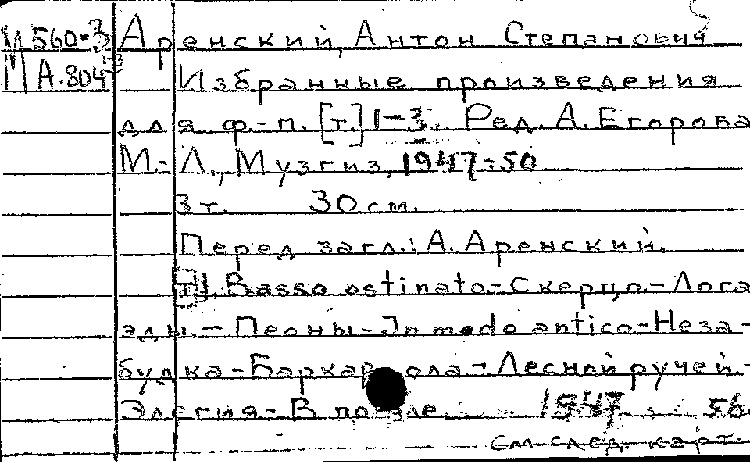 М 560-3 Аренский, Антон Степанович
М А.804 Избранные произведения
для ф-п. [т.] 1-3. Ред. А. Егорова
М.-Л., Музгиз, 1947-50
3 т. 30 см.
Перед загл.: А. Аренский.
[т.] 1. Basso ostinato-Скерцо-Лога
эды.-Пеоны-In modo antico-Неза-
будка-Баркарола-Лесной ручей-
Элегия-В поле 1947 56
см след. карт.